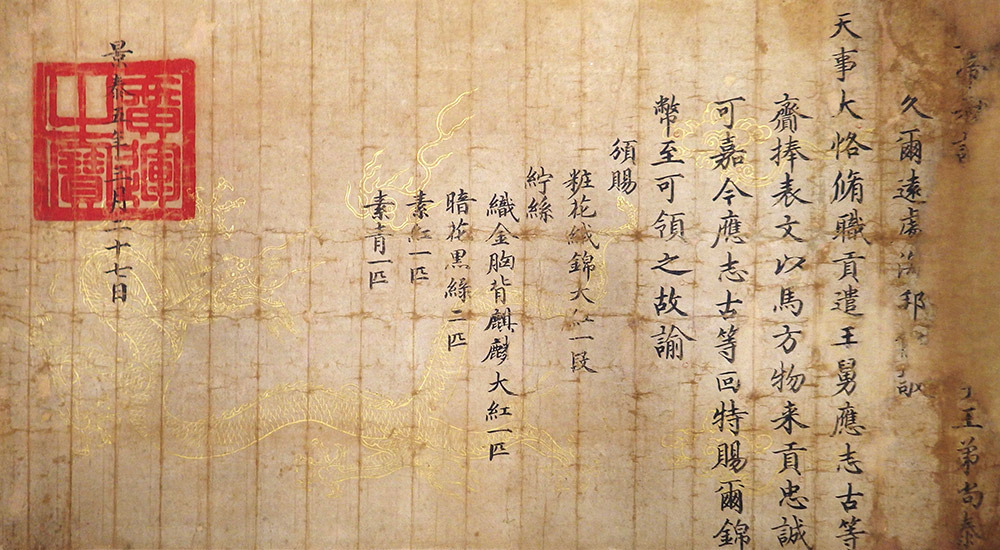 帝敕諭王弟尚泰
久爾遠處海邦敬
天事大恪脩職貢遣王舅應志古等
齎捧表文以馬方物来貢忠誠
可嘉今應志古等回特賜爾錦
幣至可領之故諭
頒賜
粧花絨錦大紅一段
紵絲
織金胸背麒麟大紅一匹
暗花黒綠二匹
素紅一匹
素青一匹
景泰五年三月二十七日
廣運之寶